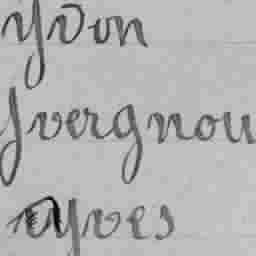 Yvon
Yvergnou
Yves